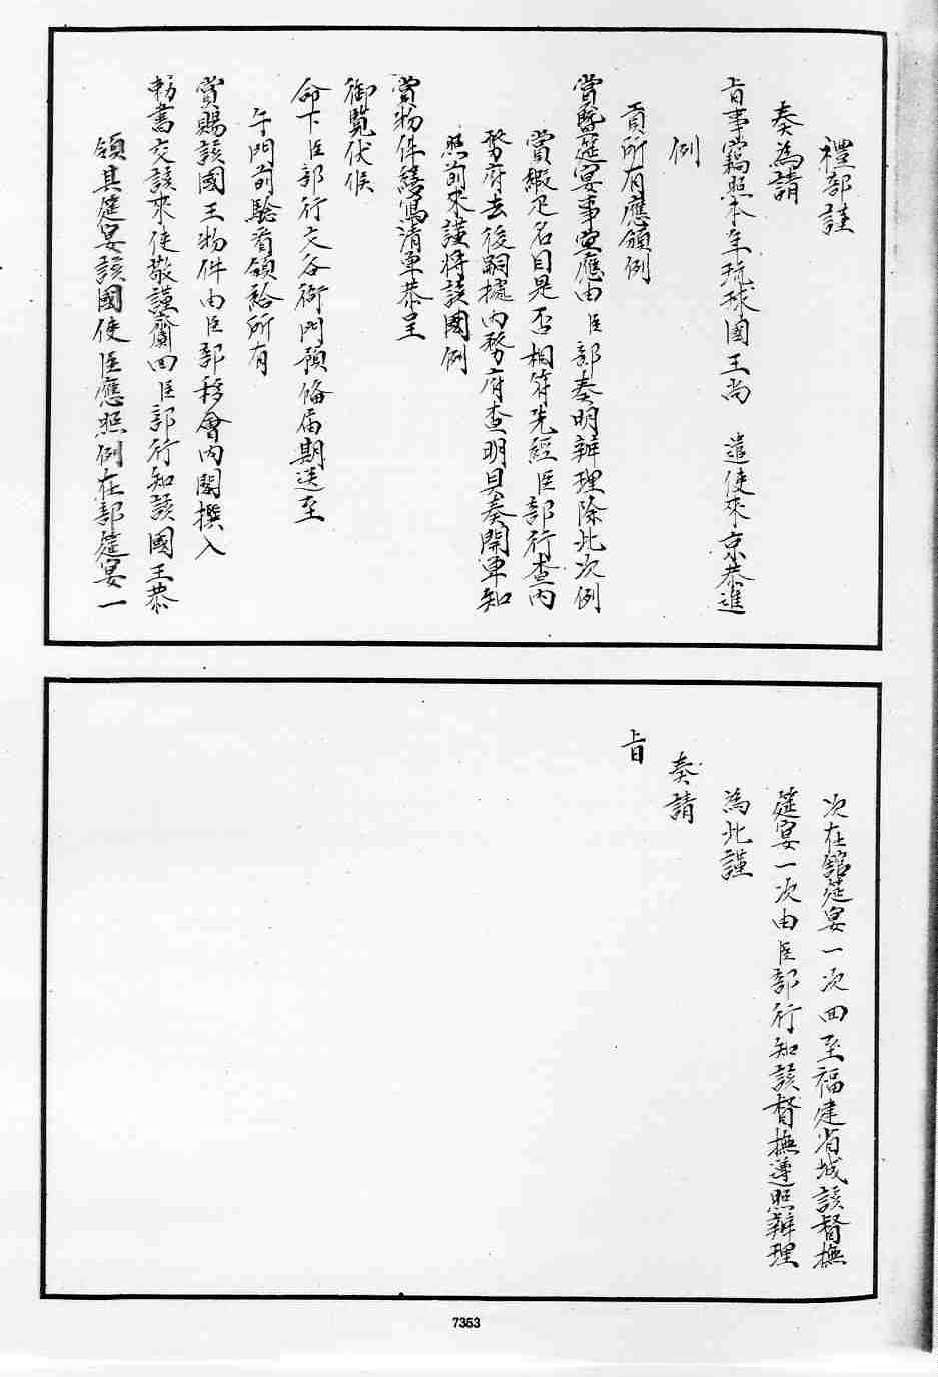 禮部謹
奏為請
旨事竊照本年琉球國王尚　遣使來京恭進
例
貢所有應頒例
賞暨筵宴事宜應由臣部奏明辦理除此次例
賞緞疋名目是否相符先經臣部行查內
務府去後嗣據內務府查明具奏開單知
照前來謹將該國例
賞物件繕寫清單恭呈
御覽伏候
命下臣部行文各衙門預備屆期送至
午門前驗看頒給所有
賞賜該國王物件由臣部移會內閣撰入
勅書交該來使敬謹齎回臣部行知該國王恭
領其筵宴該國使臣應照例在部筵宴一
次在館筵宴一次回至福建省城該督撫
筵宴一次由臣部行知該督撫遵照辦理
為此謹
奏請
旨
7353